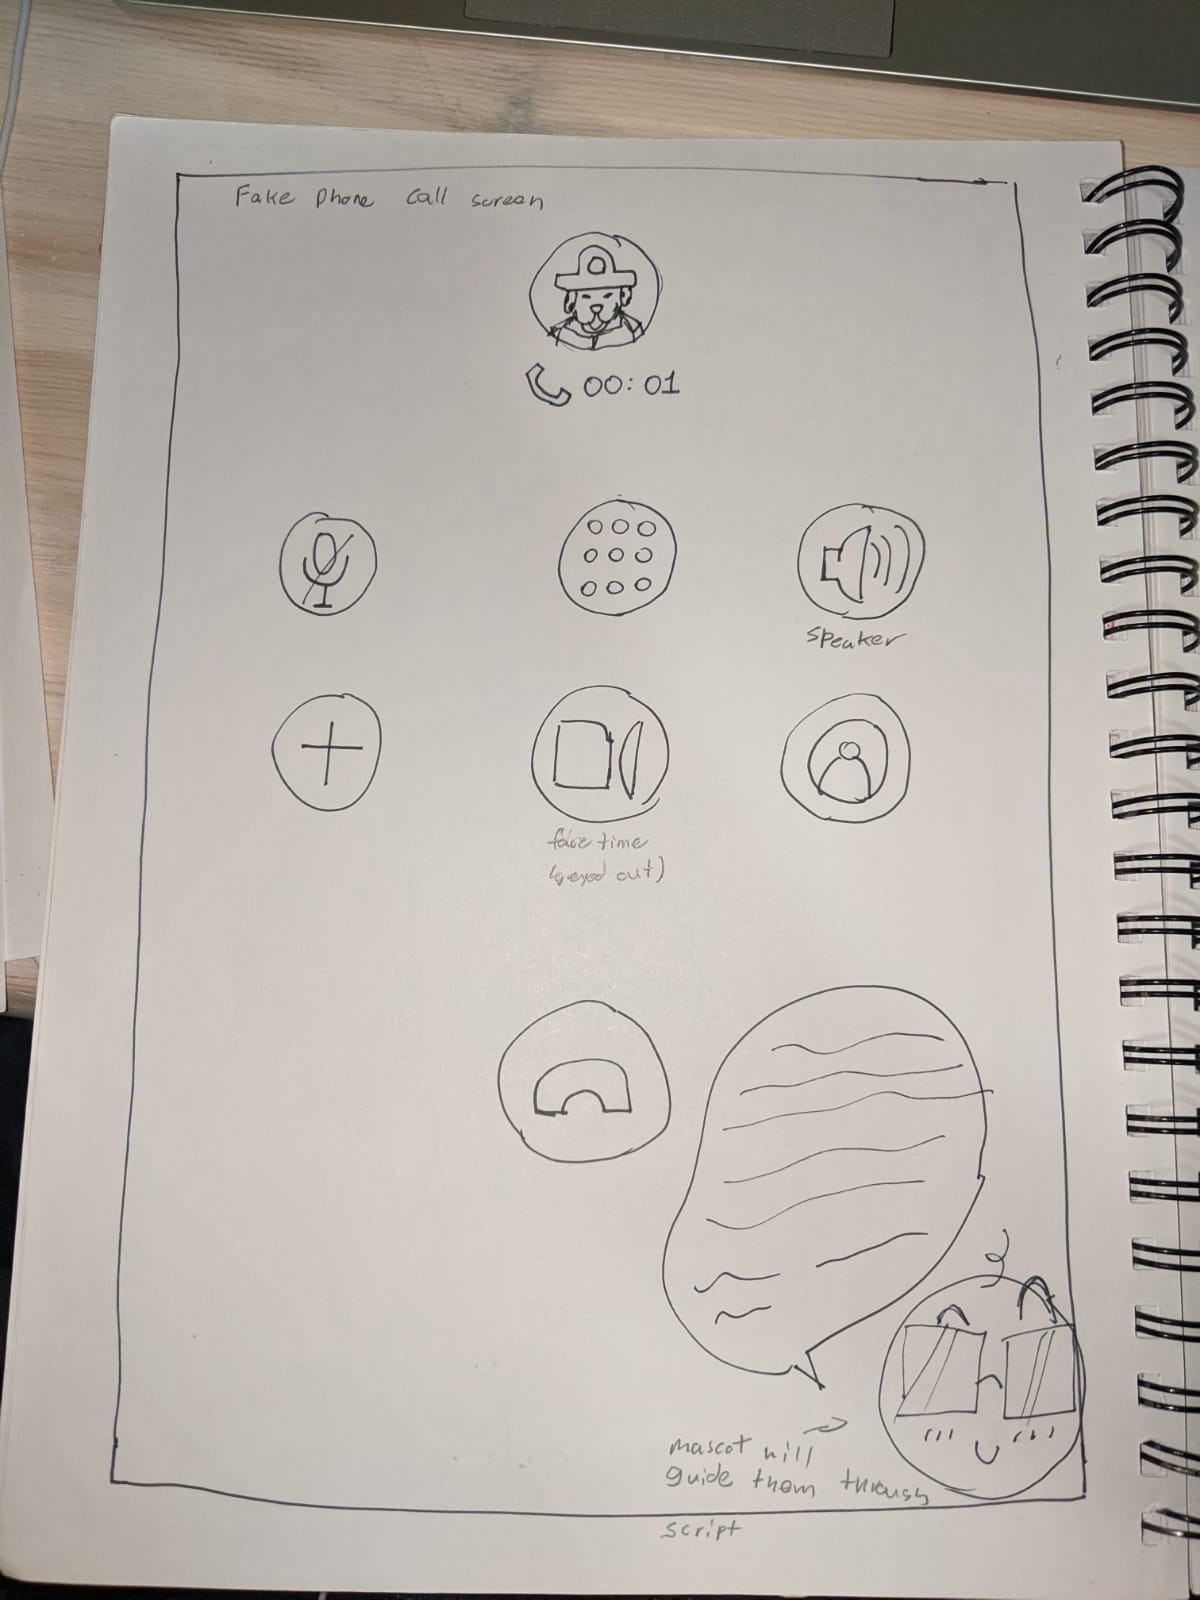 Fake phone call screen
00:01
speaker
facetime
(greyed out)
mascot will
guide them through
script